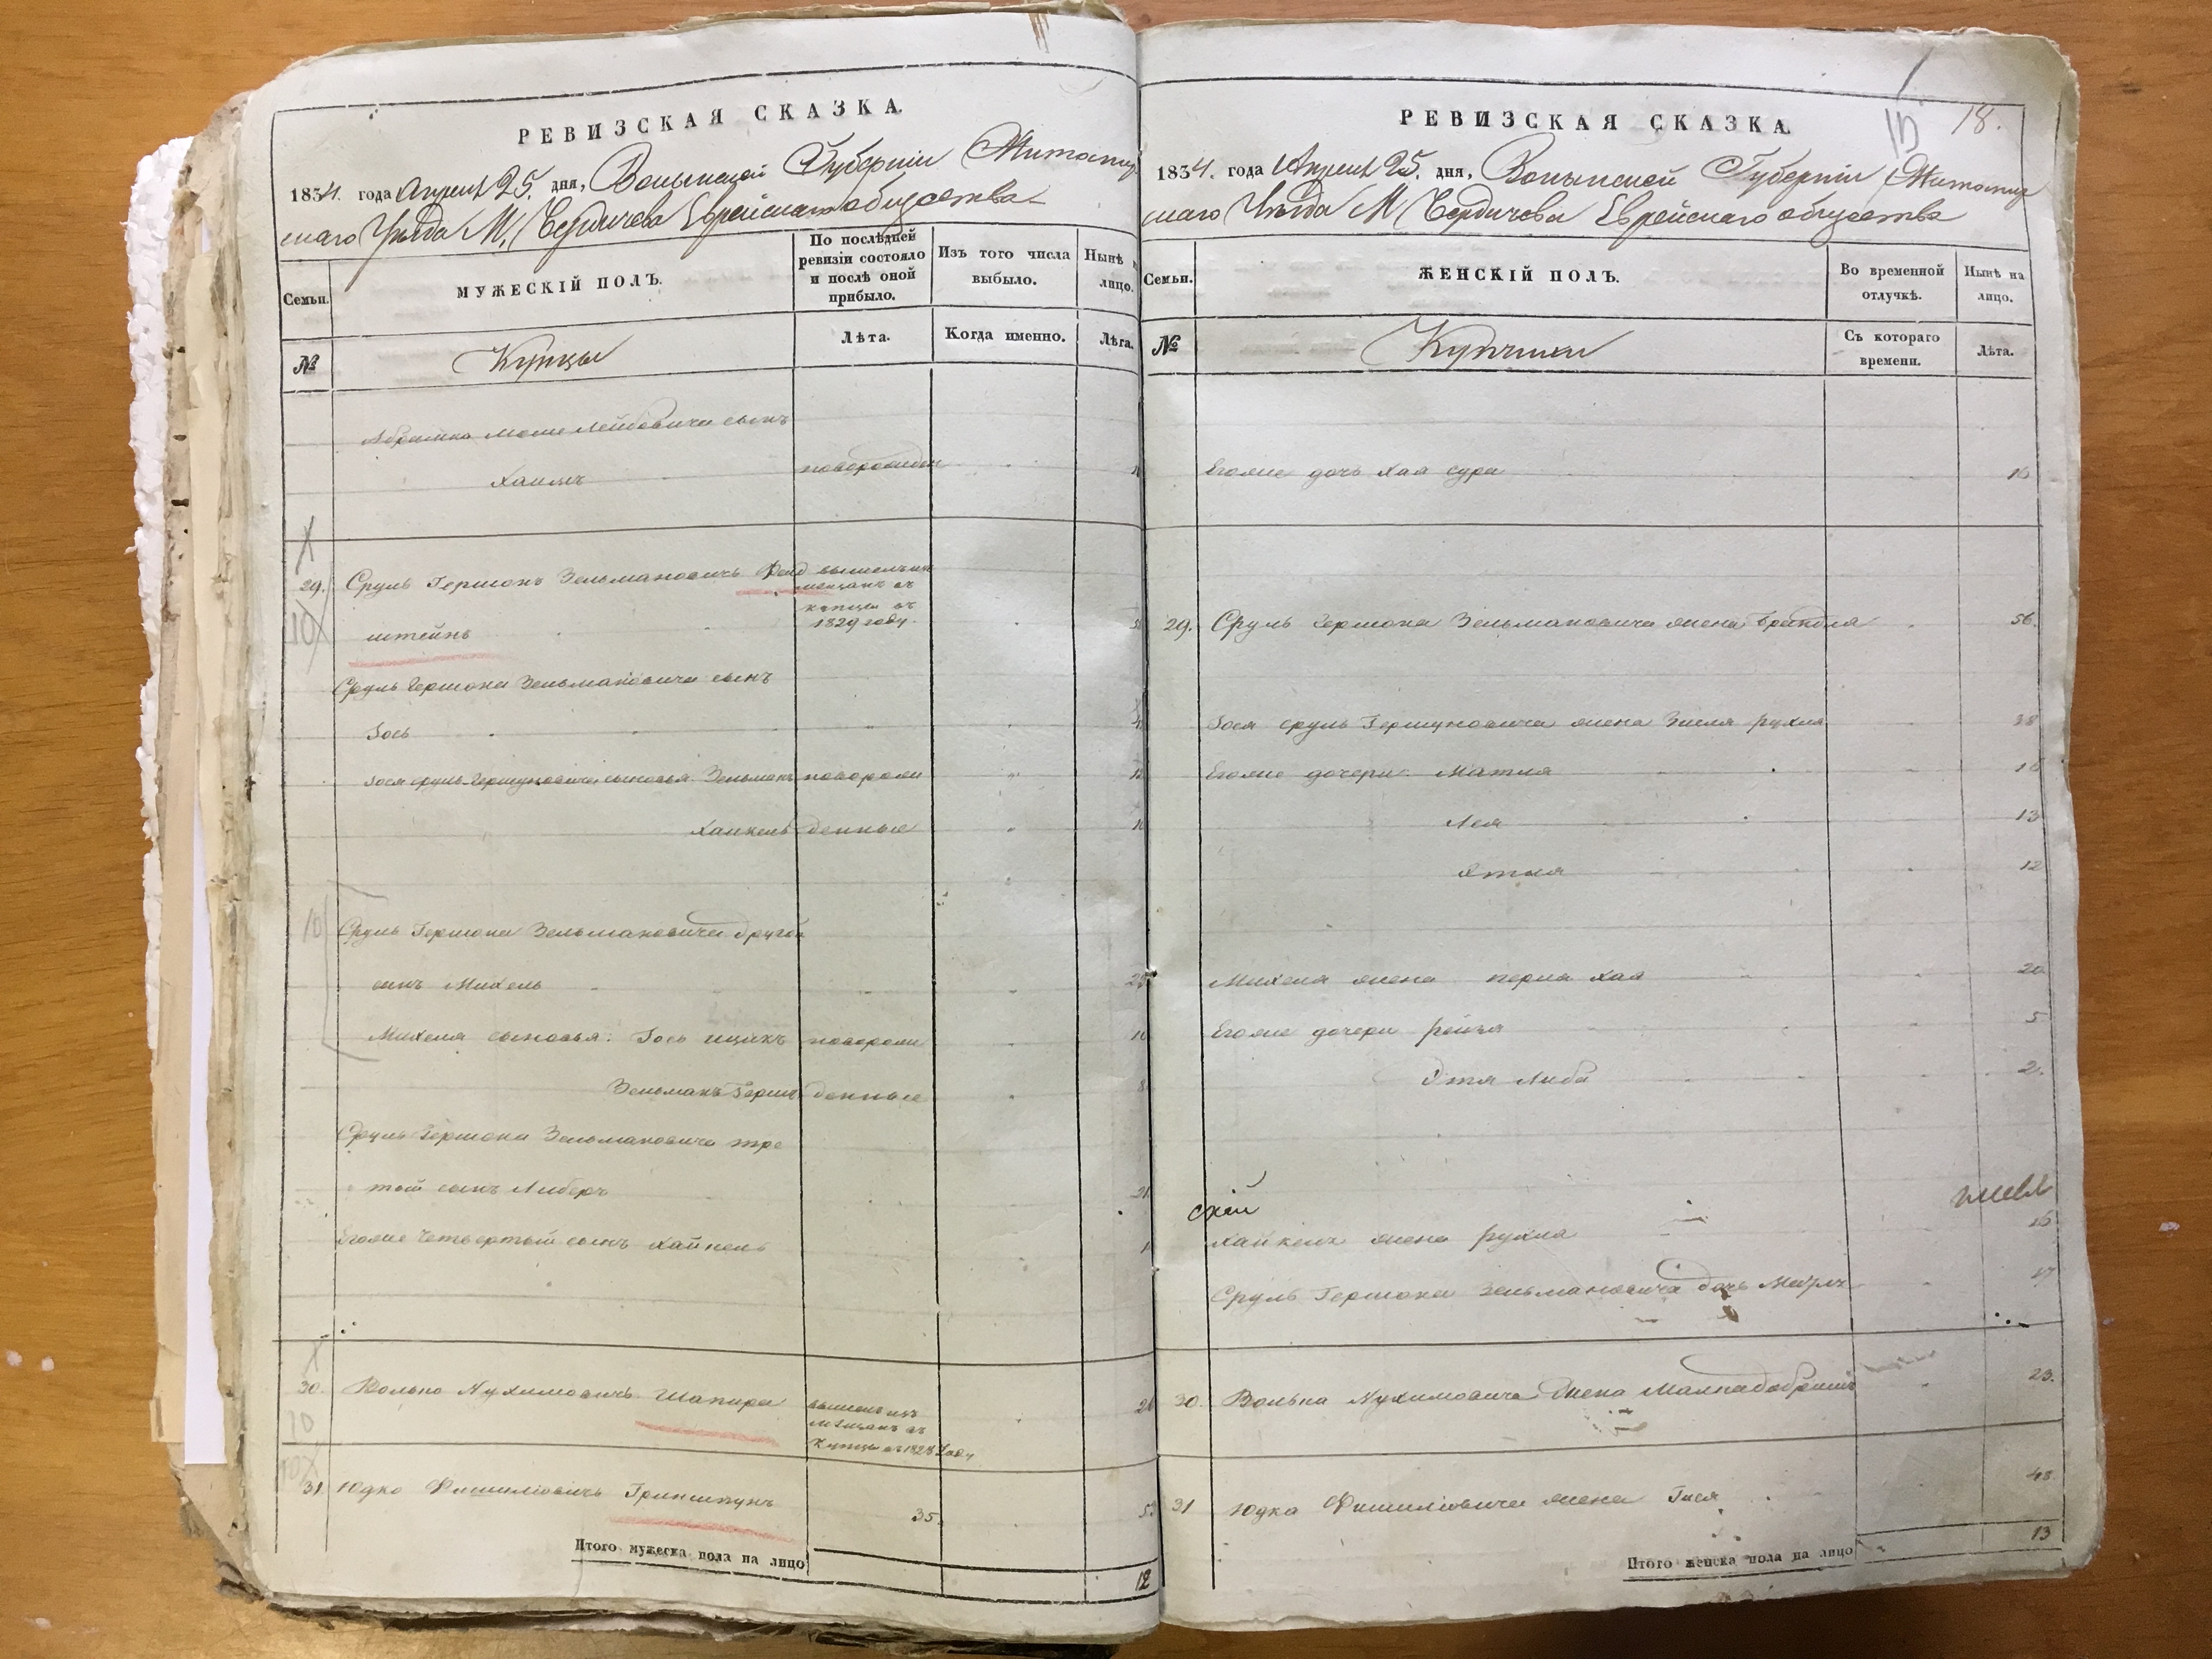 РЕВИЗСКАЯ СКАЗКА.
1834. года Апреля 25. дня, Волынской Губерніи Житомир
скаго Уѣзда М. Бердичева Еврейскаго общества
Семьи.
МУЖЕСКІЙ ПОЛЪ.
По послѣдней ревизіи состояло и послѣ оной прибыло.
Изъ того числа выбыло.
Нынѣ
лицо.
№
Купцы
Лѣта.
Когда именно.
Лѣта.
Абрамка Моше Лейбовича сынъ
Хаимъ новорожден
29. Сруль Гершонъ Зельмановичъ Фейд
штейнъ
вышелъ изъ
мещанъ въ
купцы въ
1829 году.
Сруль Гершона Зельмановича сынъ
Іось
Іося Сруль Гершуновича сыновья Зельманъ новорож
Хаикель денные
10
Сруль Гершона Зельмановича другой
сынъ Михель
Михеля сыновья: Іось Ицикъ новорож
Зельманъ Герш денные 8
Сруль Гершона Зельмановича тре
тій сынъ Либеръ 21
Егоже четвертый сынъ Хайкель
30. Волько Нухимовичъ Шапира
вышелъ изъ
мещанъ въ
купцы въ 1828 году
10
31 Юдко Фишиліовичъ Гриншпунъ 35.
Итого мужеска пола на лицо
12
РЕВИЗСКАЯ СКАЗКА.
15
18.
1834. года Апреля 25. дня, Волынской Губерніи Житомир
скаго Уѣзда М Бердичева Еврейскаго общества
Семьи.
ЖЕНСКІЙ ПОЛЪ.
Во временной отлучкѣ.
Нынѣ на лицо.
№
Купчихи
Съ котораго времени.
Лѣта.
Егоже дочь Хая Сура 16
29. Сруль Гершона Зельмановича жена Брандля 56.
Іося Сруль Гершуновича жена Зисля Рухля 38
Егоже дочери: Матля
Лея 13
Этля 12
Михеля жена Перля Хая 20
Егоже дочери Рейзя 5
Этя Либа 2.
Хайкеля жена Рухля
Сруль Гершона Зельмановича дочь 17
30. Волька Нухимовича жена 23.
31 Юдка Фишиліовича жена Гися 48.
Итого женска пола на лицо
13